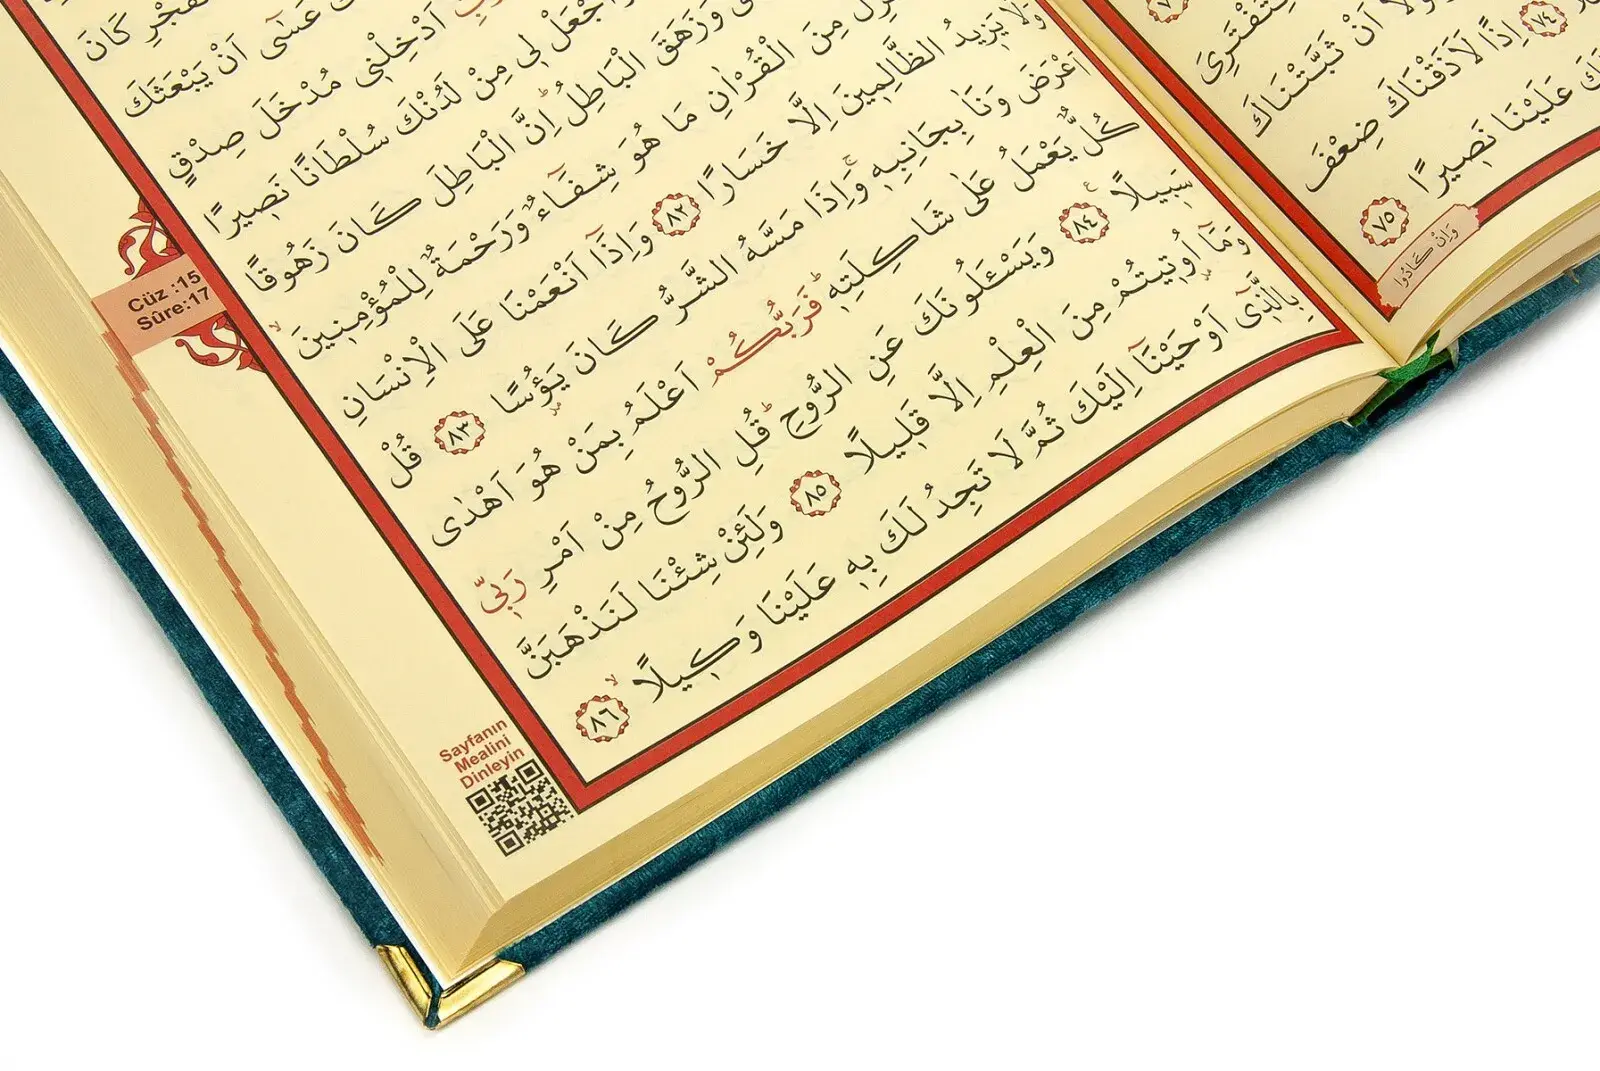 لِتَفْتَرِىَ
اَنْ ثَبَّتْنَاكَ
٧٤ اِذًا لَاَذَقْنَاكَ ضِعْفَ
عَلَيْنَا نَصِيرًا ٧٥
وَاِنْ كَادُوا
كَانَ
عَسٰٓى اَنْ يَبْعَثَكَ
اَدْخِلْنِى مُدْخَلَ صِدْقٍ
وَاجْعَلْ لِى مِنْ لَدُنْكَ سُلْطَانًا نَصِيرًا
وَزَهَقَ الْبَاطِلُ اِنَّ الْبَاطِلَ كَانَ زَهُوقًا
مِنَ الْقُرْاٰنِ مَا هُوَ شِفَٓاءٌ وَرَحْمَةٌ لِلْمُؤْمِنِينَ
وَلَا يَزِيدُ الظَّالِمِينَ اِلَّا خَسَارًا ٨٢ وَاِذَٓا اَنْعَمْنَا عَلَى الْاِنْسَانِ
اَعْرَضَ وَنَاٰ بِجَانِبِهِ وَاِذَا مَسَّهُ الشَّرُّ كَانَ يَؤُسًا ٨٣ قُلْ
كُلٌّ يَعْمَلُ عَلٰى شَاكِلَتِهِ فَرَبُّكُمْ اَعْلَمُ بِمَنْ هُوَ اَهْدٰى
سَبِيلًا ٨٤ وَيَسْـَٔلُونَكَ عَنِ الرُّوحِ قُلِ الرُّوحُ مِنْ اَمْرِ رَبِّى
وَمَٓا اُوتِيتُمْ مِنَ الْعِلْمِ اِلَّا قَلِيلًا ٨٥ وَلَئِنْ شِئْنَا لَنَذْهَبَنَّ
بِالَّذِٓى اَوْحَيْنَٓا اِلَيْكَ ثُمَّ لَا تَجِدُ لَكَ بِهِ عَلَيْنَا وَكِيلًا ٨٦
Cüz :15
Sûre:17
Sayfanın
Mealini
Dinleyin